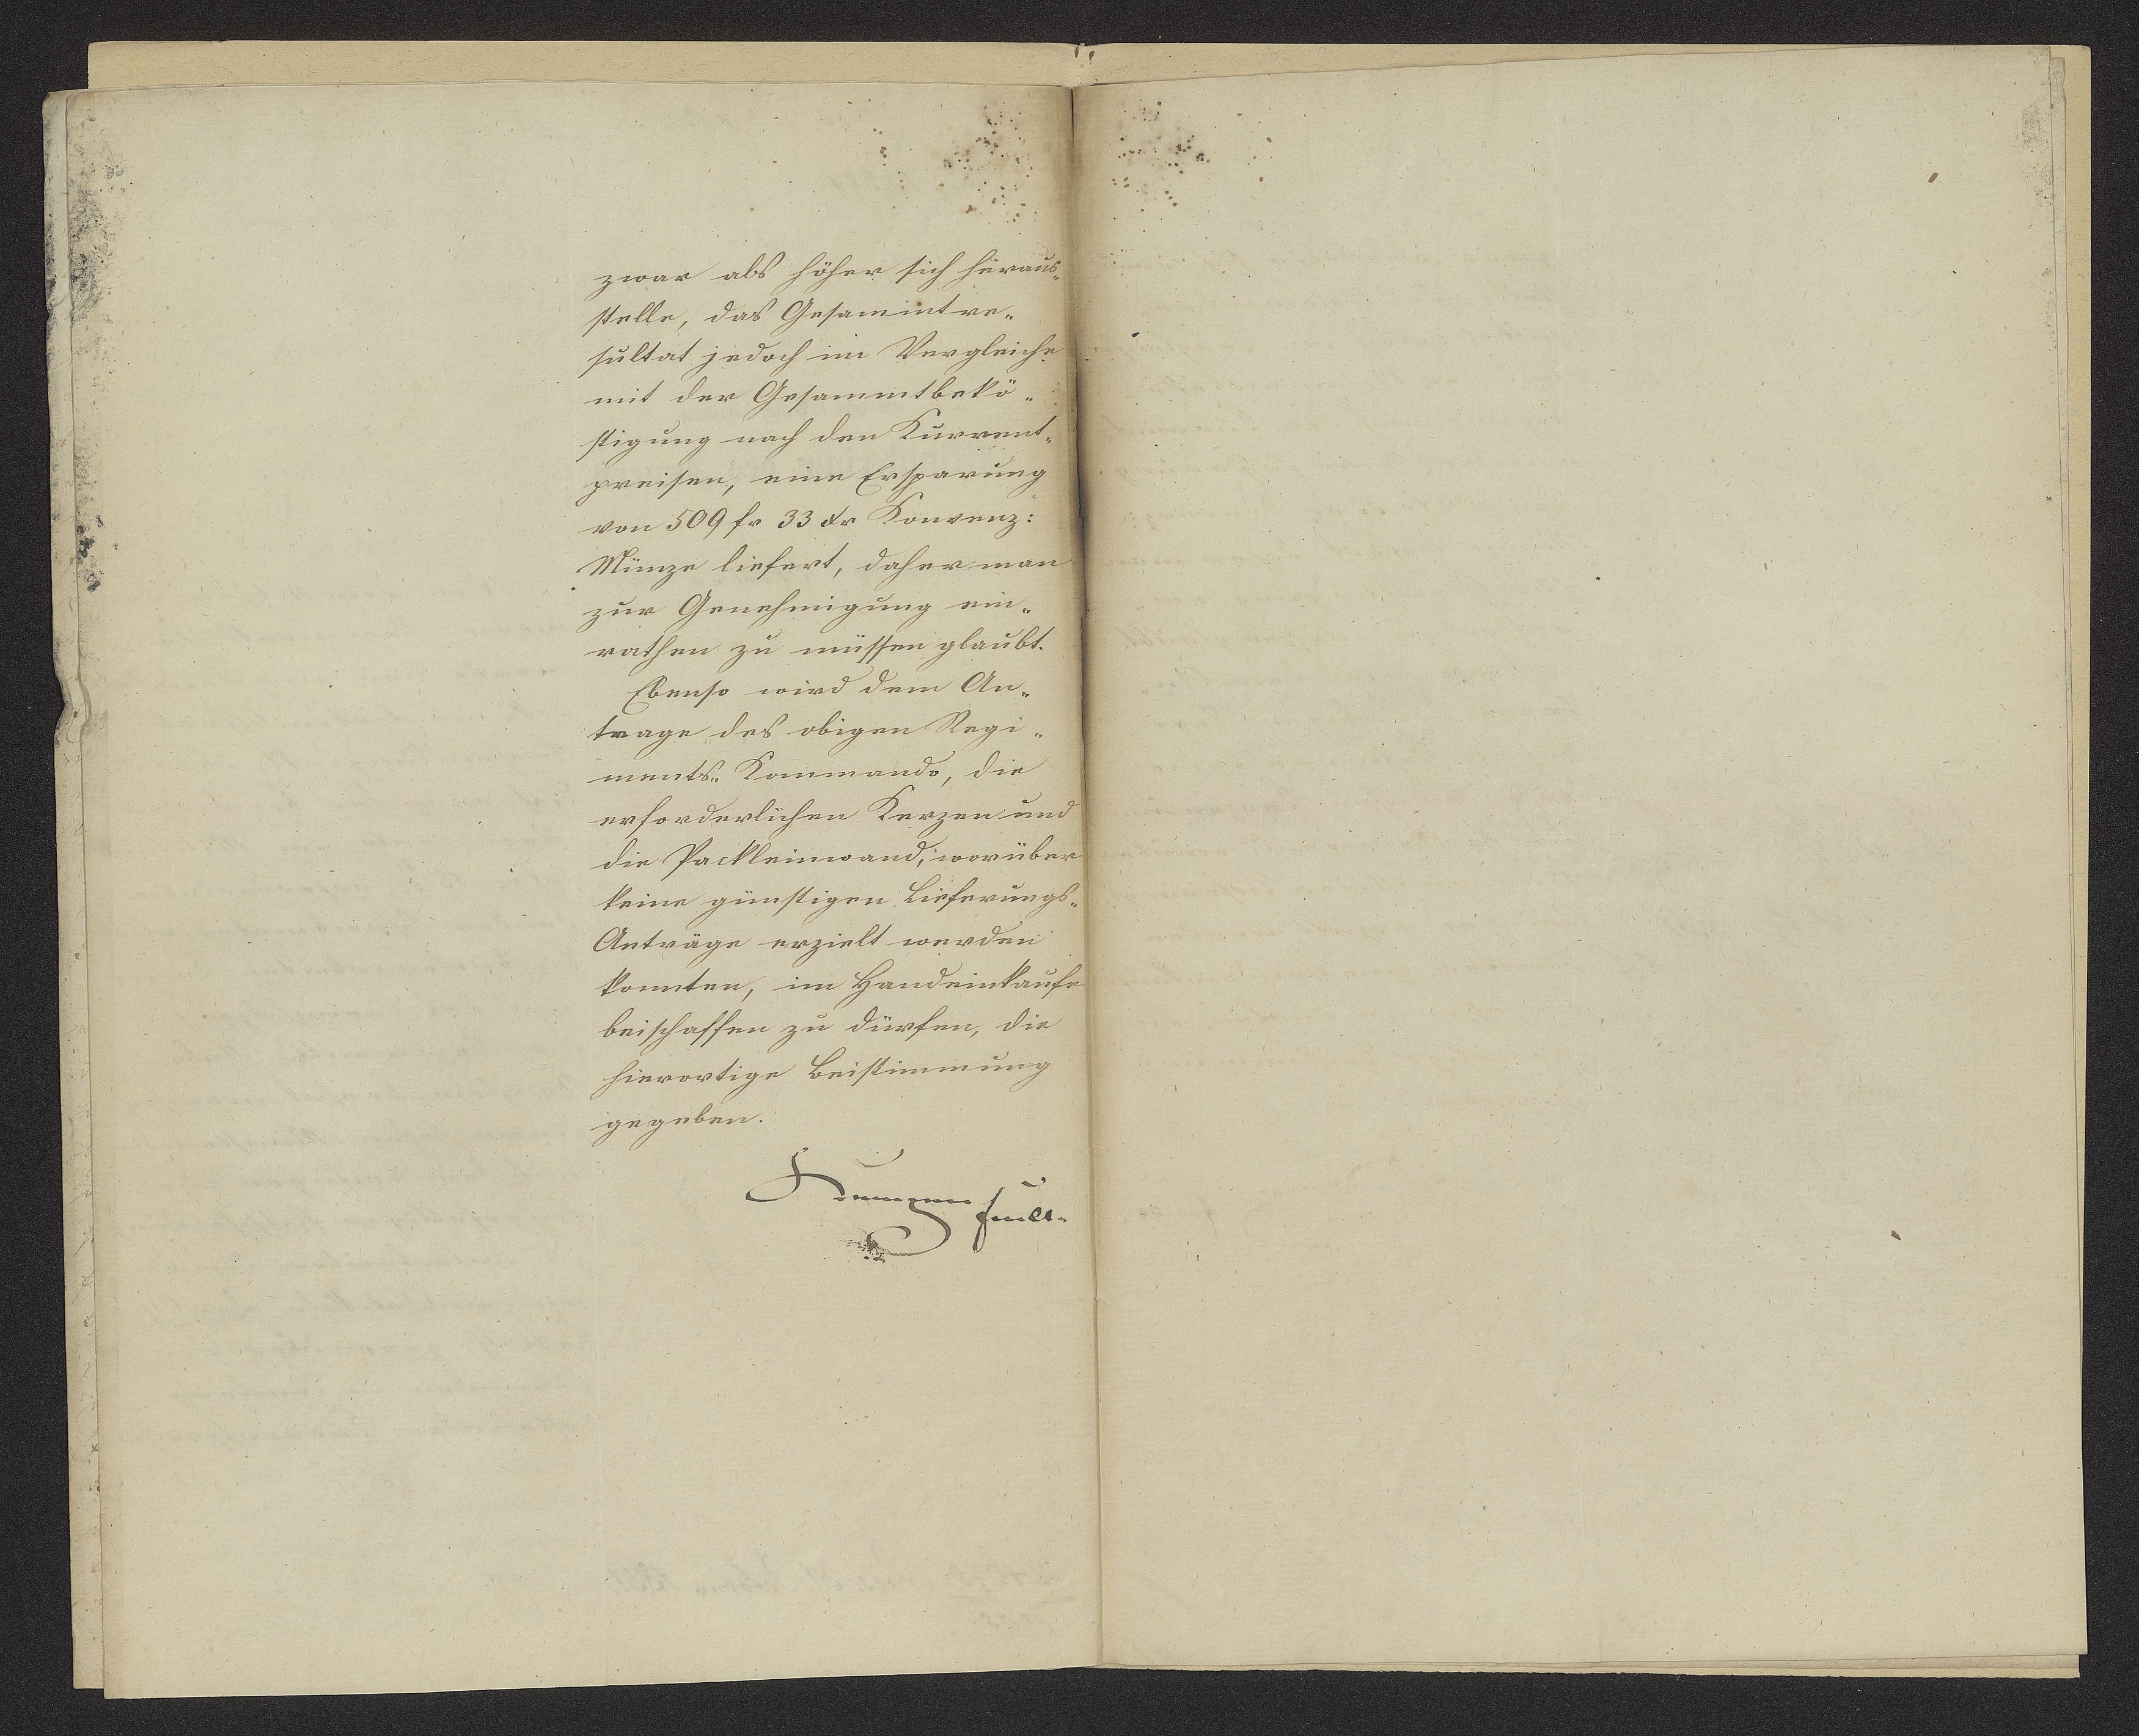 zwar als höher sich heraus„
stelle, das Gesammtre„
sultat jedoch im Vergleiche
mit der Gesammtbekö„
stigung nach den Kurrent„
preisen, eine Ersparung
von 509 fr 33 xr Konvenz:
Münze liefert, daher man
zur Genehmigung ein„
rathen zu müssen glaubt.
Ebenso wird dem An„
trage des obigen Regi„
ments„ Kommando, die
erforderlichen Kerzen und
die Packleinwand, worüber
keine günstigen Lieferungs„
Anträge erzielt werden
konnten, im Handeinkaufe
beischaffen zu dürfen, die
hierortige Beistimmung
gegeben.